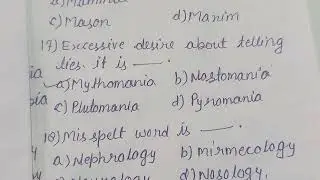 c) Mason d) Manim
17) Excessive desire about telling
lies. it is —.
a) Mythomania b) Nostomania
c) Plutomania d) Pyromania
18) Mis spelt word is —.
a) Nephrology b) mirmecology
d) Nosology,